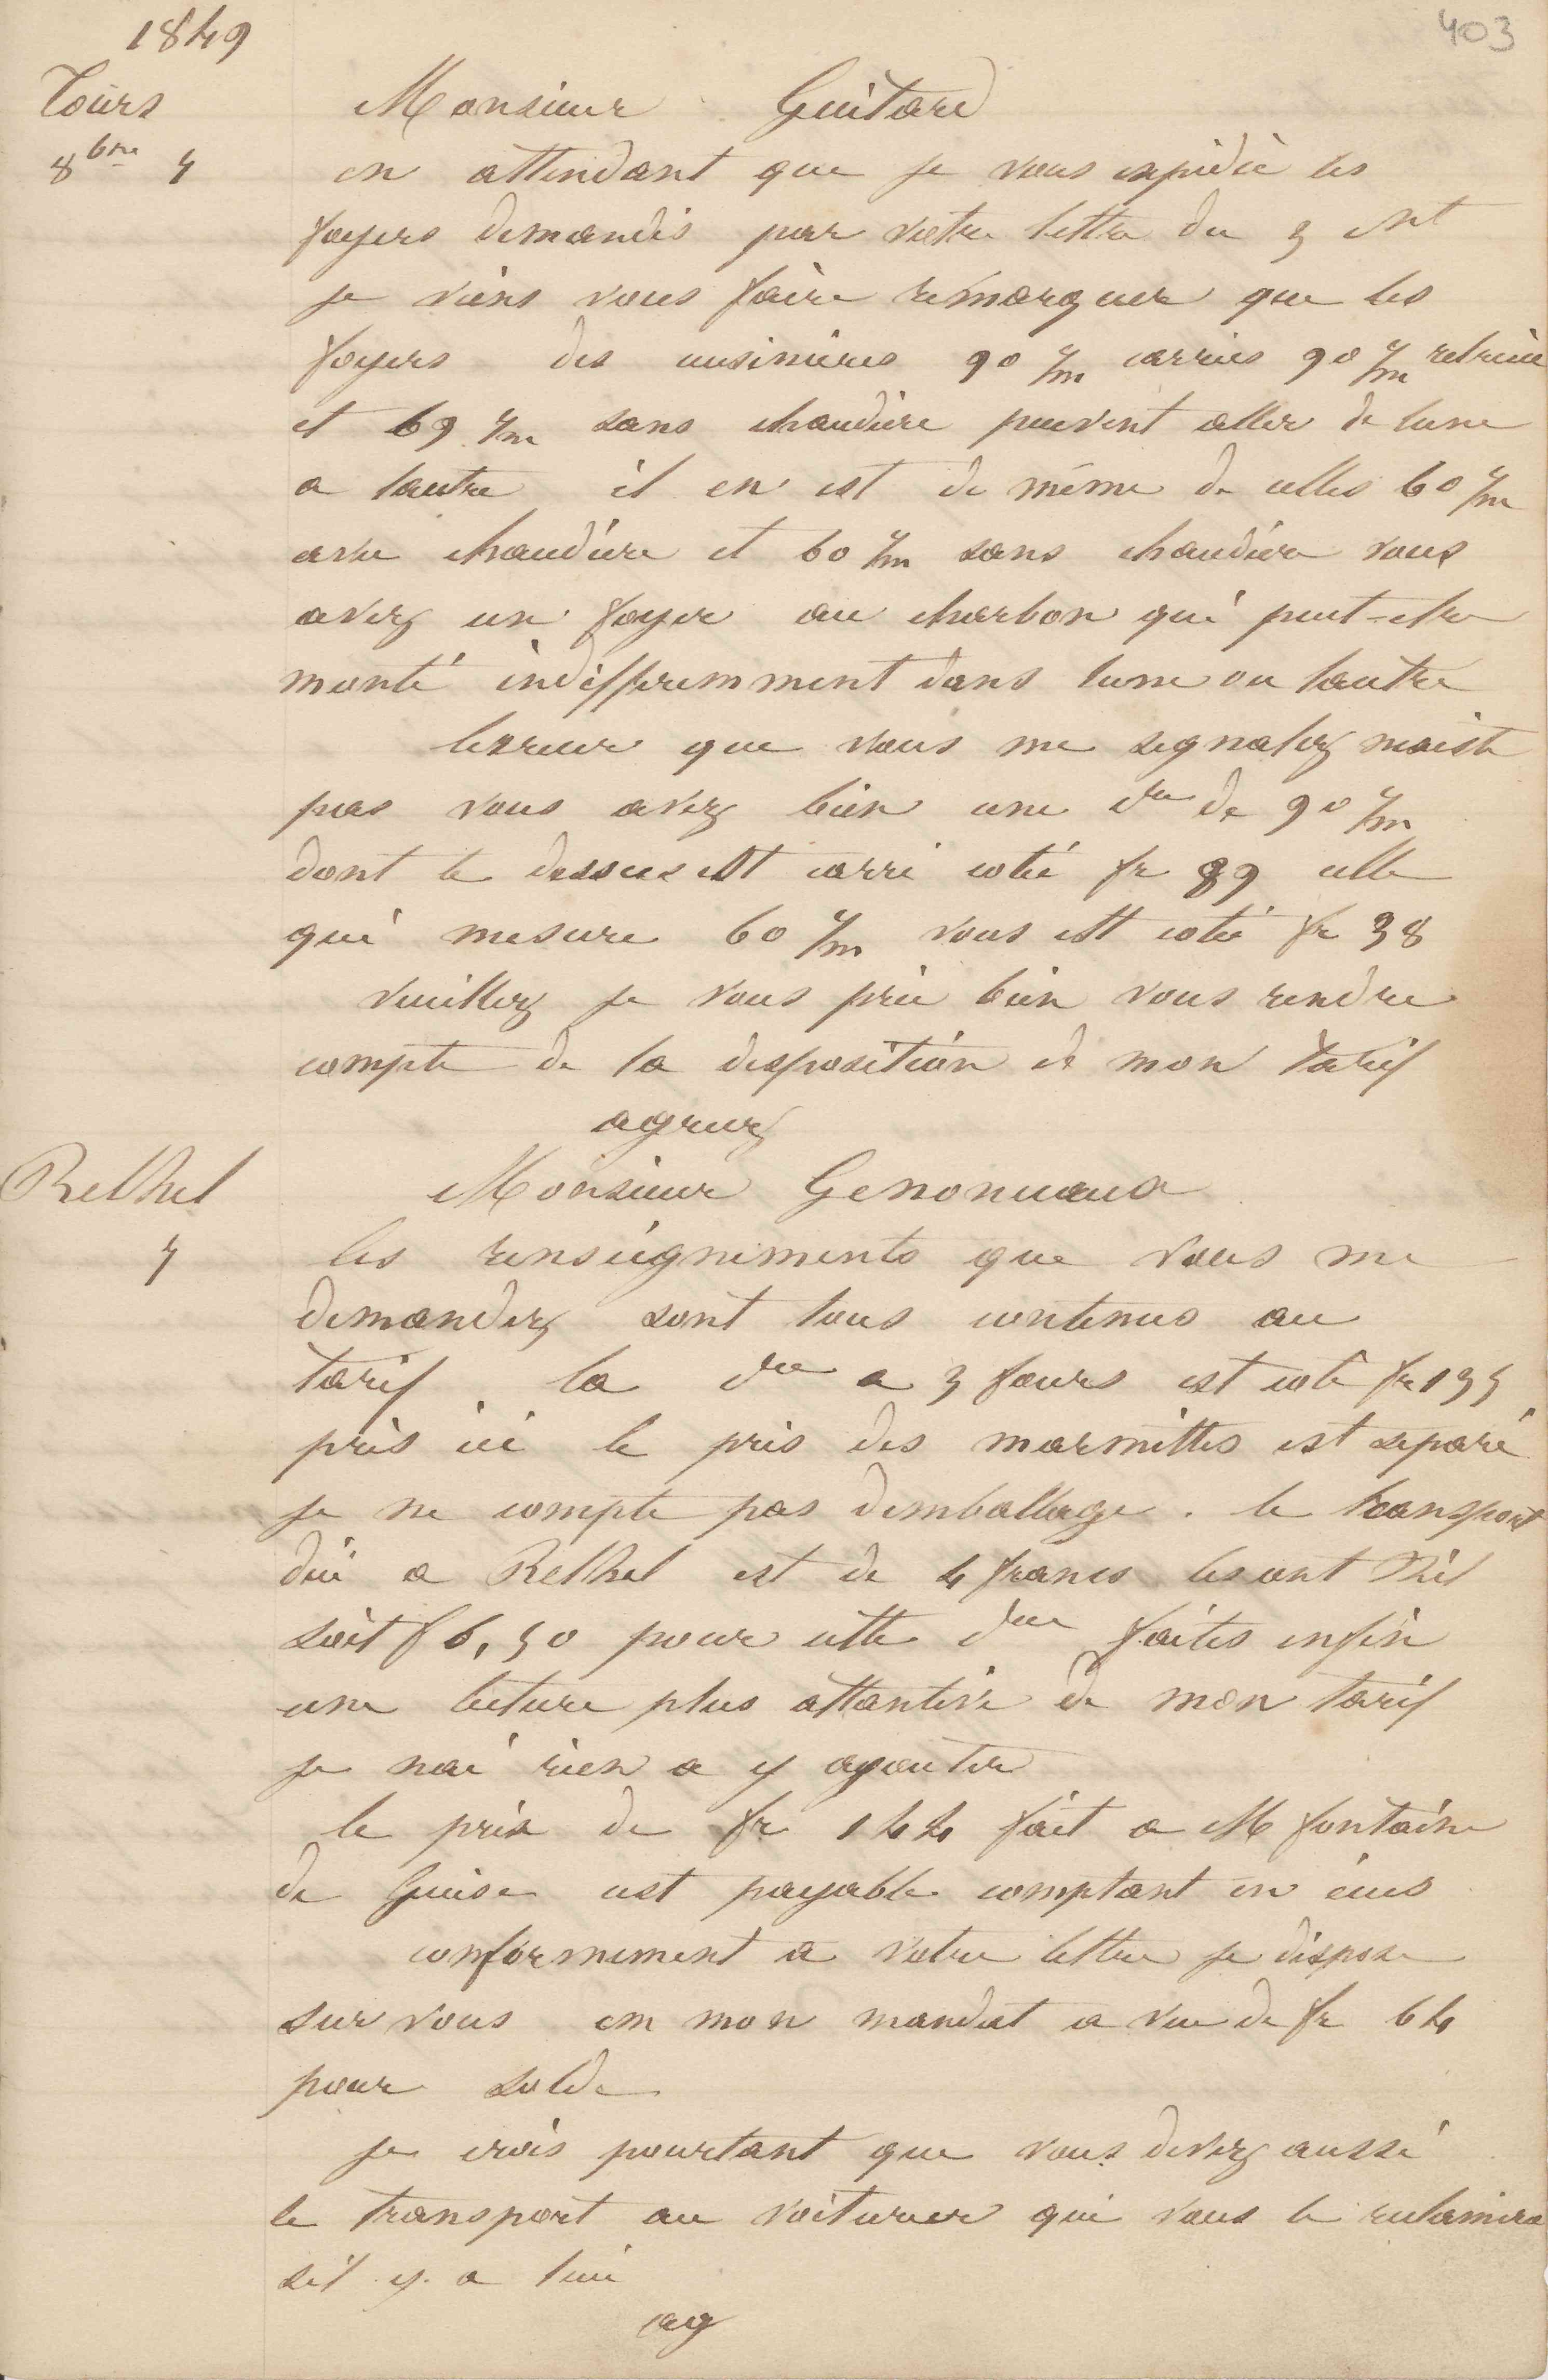 1849
403
Tours
8bre 5
Monsieur Guitard
en attendant que je vous expédie les
foyers demandés par votre lettre du 3 ct
je viens vous faire remarquer que les
foyers des cuisinières 90 c/m carries 90 c/m retreint
et 69 c/m sans chaudière peuvent aller de lune
a lautre il en est de même de celles 60 c/m
avec chaudière et 60 c/m sans chaudière vous
avez un foyer au charbon qui peut-etre
monté indifferemment dans lune ou lautre
lerreur que vous me signalez naiste
pas vous avez bien une dre de 90 c/m
dont le dessus est carré coté fr 89 celle
qui mesure 60 c/m vous est coté fr 38
veuillez je vous prie bien vous rendre
compte de la disposition de mon tarif
agreez
Rethel
5
Monsieur Genonceaux
les renseignements que vous me
demandez sont tous contenus au
tarif. la dre a 3 fours est coté fr 135
pris ici le pris des marmittes est separé
je ne compte pas demballage. le transport
dici a Rethel est de 4 francs les cent Kil
soit f 6,50 pour cette dre faites enfin
une lecture plus attantive de mon tarif
je nai rien a y ajouter
le prix de fr 144 fait a M fontaine
de Guise est payable comptant en écus
conformement a votre lettre je dispose
sur vous em mon mandat a vue de fr 64
pour solde
je crois pourtant que vous devez aussi
le transport au voiturier qui vous le reclamera
sil y a lieu
ag